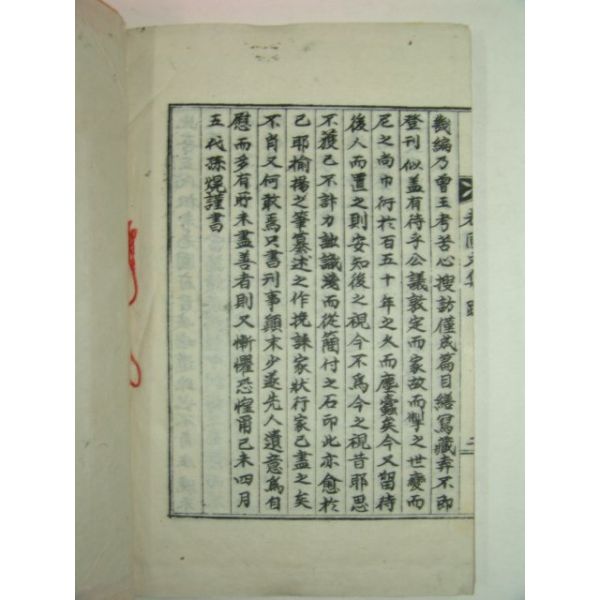 老圃文集 跋 二
幾編乃曾王考苦心搜訪僅成篇目繕寫藏弆不卽
登刊似盖有待乎公議敦定而家故而掣之世變而
尼之尚巾衍於百五十年之久而塵蠹矣今又留待
後人而置之則安知後之視今不爲今之視昔耶思
不獲已不計力詘識淺而從簡付之石印此亦愈於
已耶揄揚之筆纂述之作挽誄家狀行家已盡之矣
不肖又何敢焉只書刊事顚末少遂先人遺意爲自
慰而多有所未盡善者則又慚懼恐惶爾己未四月
五代孫 謹書